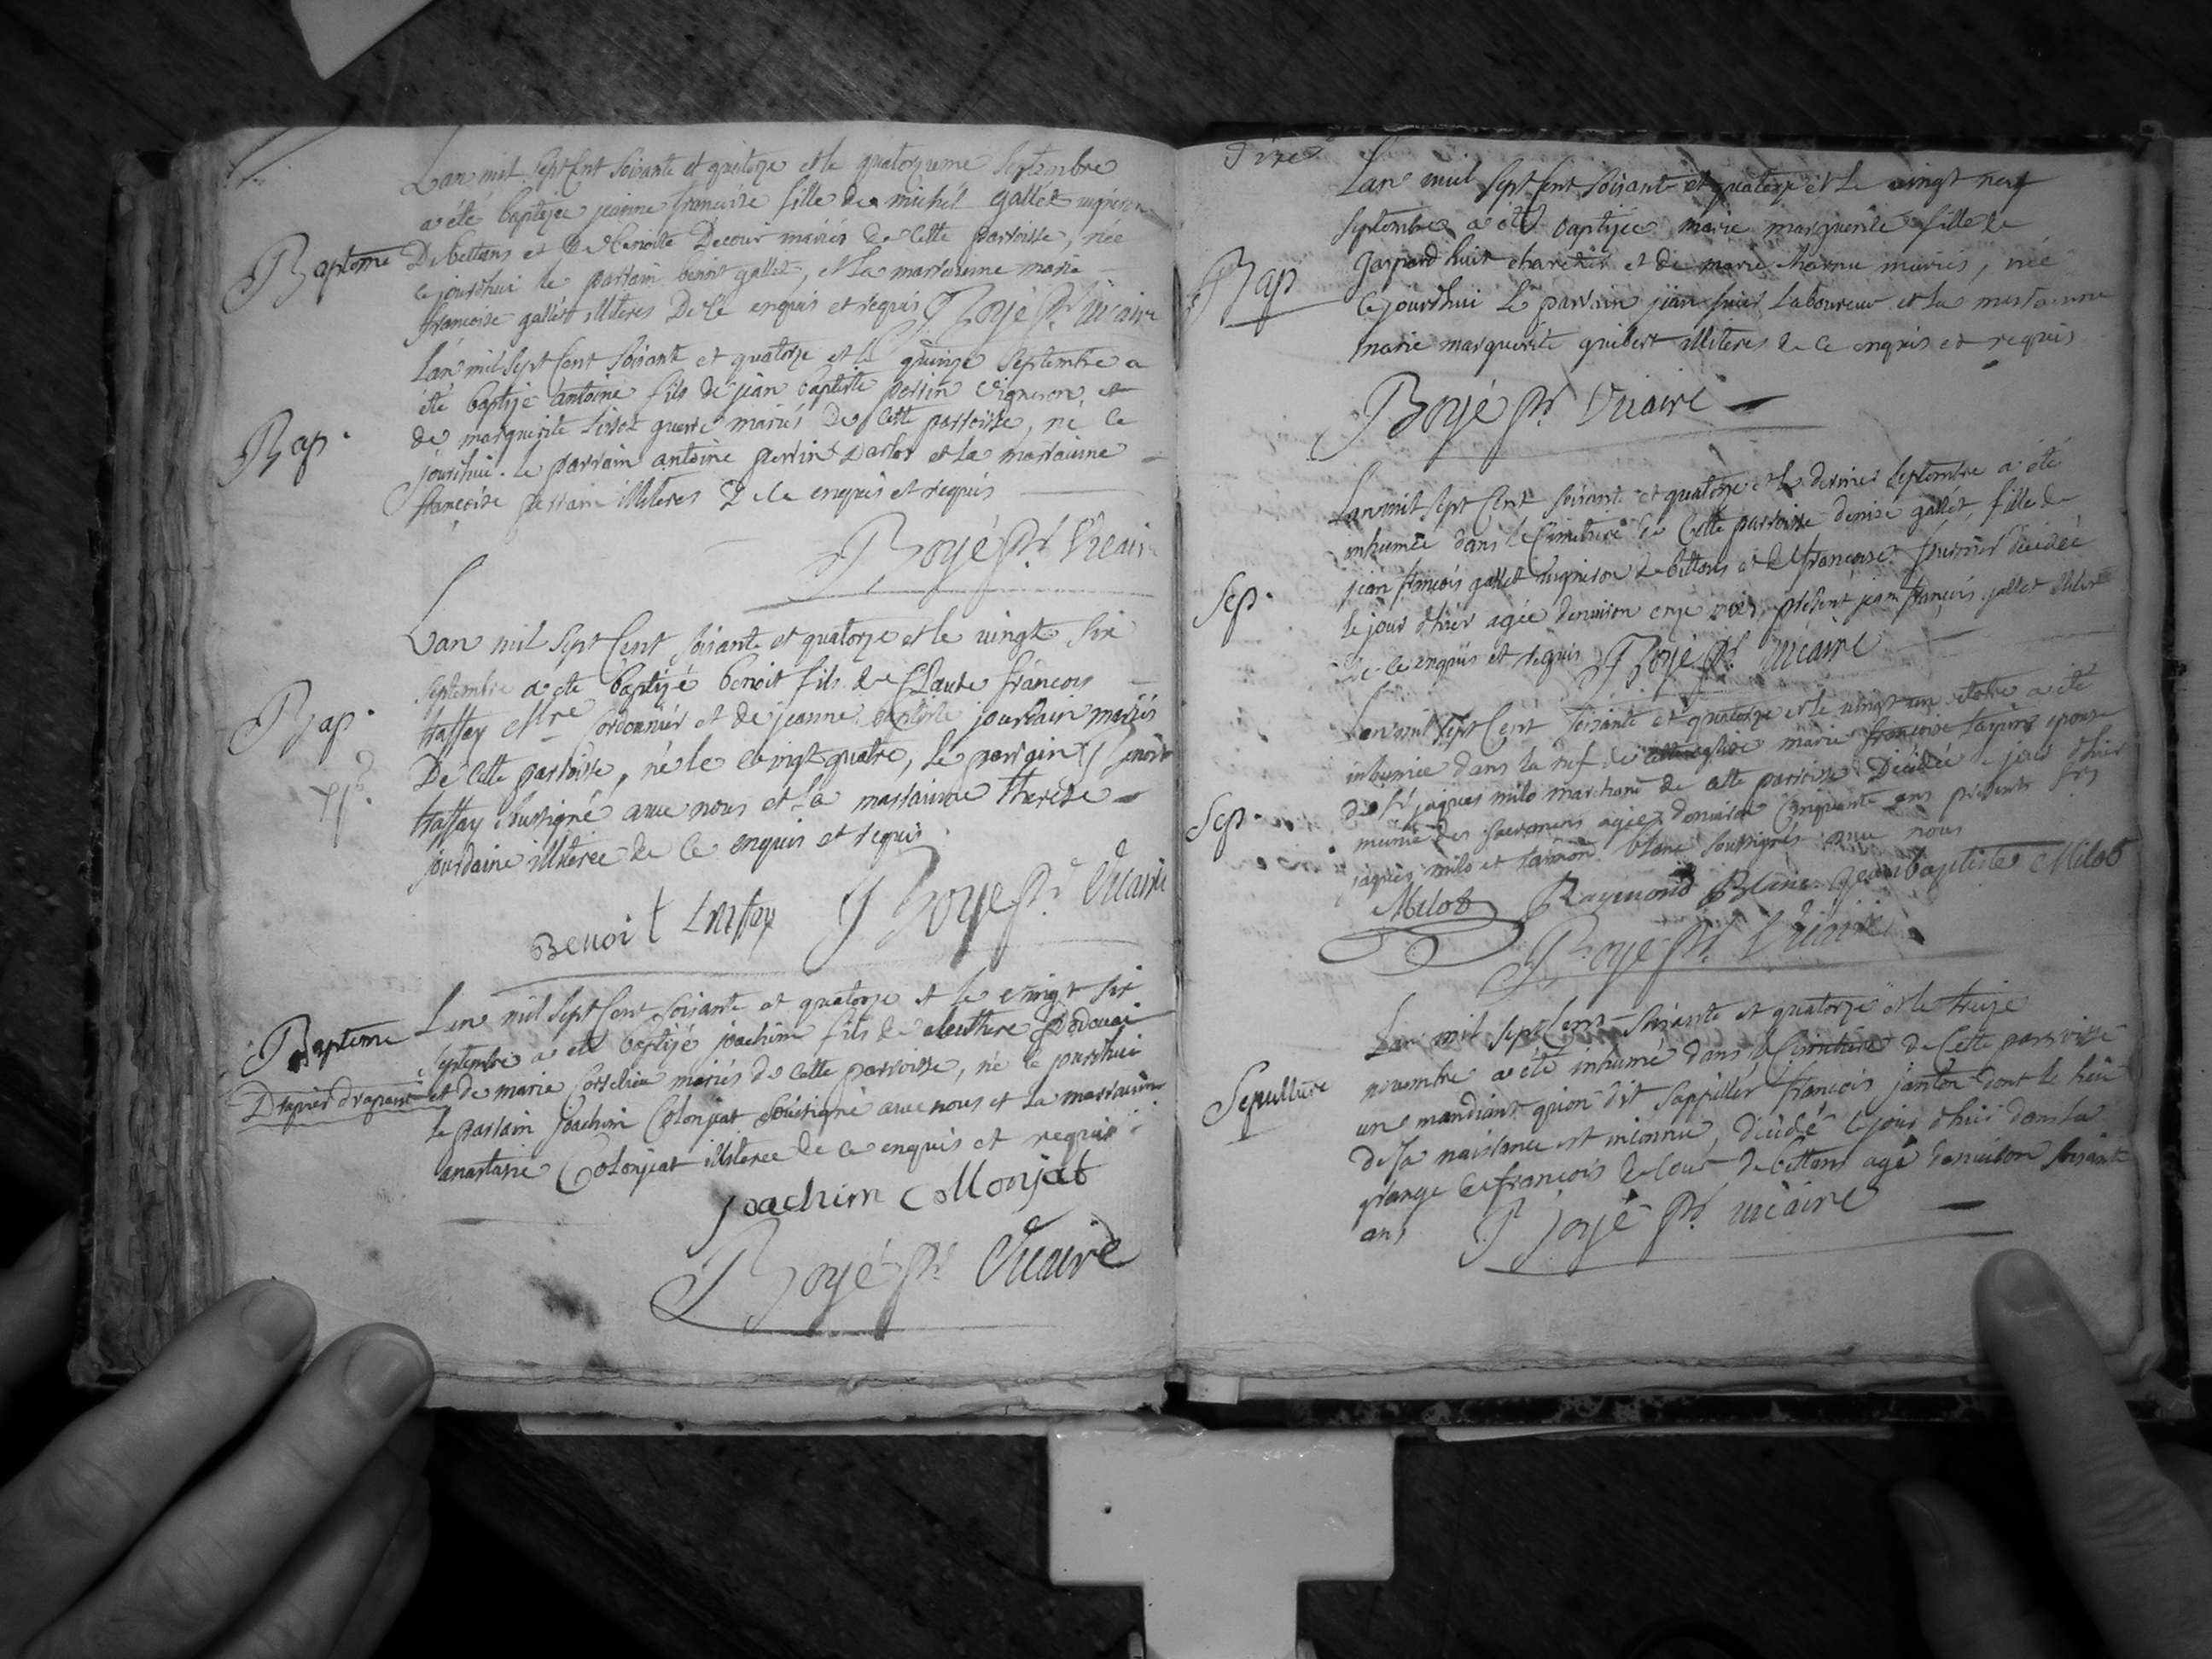 Lan mil Sept Cent Soixante et quatorze et le quatorzieme Septembre
a été baptizée jeanne francoise fille de michel gallet vigneron
Bapteme De bettans et de benoite Decour mariés de Cette parroisse, née
ce jourdhui le parrain benoit gallet, et La marraine marie
francoise gallet illiteres De Ce enquis et requis Boyé Ptr Vicaire
Lan mil Sept Cent Soixante et quatorze et le quinze Septembre a
été baptizé antoine fils de jean baptiste perrin Vigneron et
Bap. de marguerite guerre mariés De Cette parroisse, né Ce
jourdhui. Le parrain antoine perrin et La marraine
francoise perrain illiteres De Ce enquis et requis
Boyé Ptr Vicaire
Lan mil Sept Cent Soixante et quatorze et le vingt Six
Septembre a été baptizé benoit fils de Claude francois
Bap. traffay Mtre Cordonnier et de jeanne baptiste jourdain mariés
De Cette parroisse, né le vingt quatre, Le parrain benoit
traffay Soussigné avec nous et La marraine therese
jourdaine illiterée de Ce enquis et requis
Benoit traffay Boyé Ptr Vicaire
Lan mil Sept Cent Soixante et quatorze et le vingt Six
Bapteme Septembre a été baptizé joachim fils de eleuthere
Drapier drapant et de marie mariés de Cette parroisse, né Ce jourdhui
Le parrain joachim Colonjeat Soussigné avec nous et La marraine
anastasie Colonjeat illiterée de Ce enquis et requis
joachim Collonjat
Boyé Ptr Vicaire
Lan mil Sept Cent Soixante et quatorze et Le vingt neuf
Septembre a été baptizée marie marguerite fille de
Bap gaspard huit charetier et de marie mariés, née
Ce jourdhui Le parrain jean Laboureur et La marrainne
marie marguerite guibert illiteres de Ce enquis et requis
Boyé Ptr Vicaire
Lan mil Sept Cent Soixante et quatorze et le dernier Septembre a été
inhumée dans le Cimetiere de Cette parroisse denise gallet, fille de
Sep. jean francois gallet vigneron de bettans et de francoise fournier décédée
le jour dhier agée denviron onze mois, présent jean francois gallet illitere
de Ce enquis et requis Boyé Ptr Vicaire
Lan mil Sept Cent Soixante et quatorze et le vingt un octobre a été
inhumée dans la nef de marie francoise epouse
Sep. de Sr jaques milo marchand de Cette parroisse Décédée le jour dhier
munie des Sacremens agée denviron Cinquante ans présents Srs
jaques milo et raimon blanc Soussignés avec nous
Milot Raymond Blanc jean baptiste Milot
Boyé Ptr Vicaire
Lan mil Sept Cent Soixante et quatorze et le treize
Sepulture novembre a été inhumé dans le Cimetiere de Cette parroisse
un mandiant quion dit Sappeller francois janton dont le lieu
de Sa naissance est inconnu, décédé le jour dhier dans La
grange de francois de Cour de bettans agé denviron Soixante
ans Boyé Ptr Vicaire